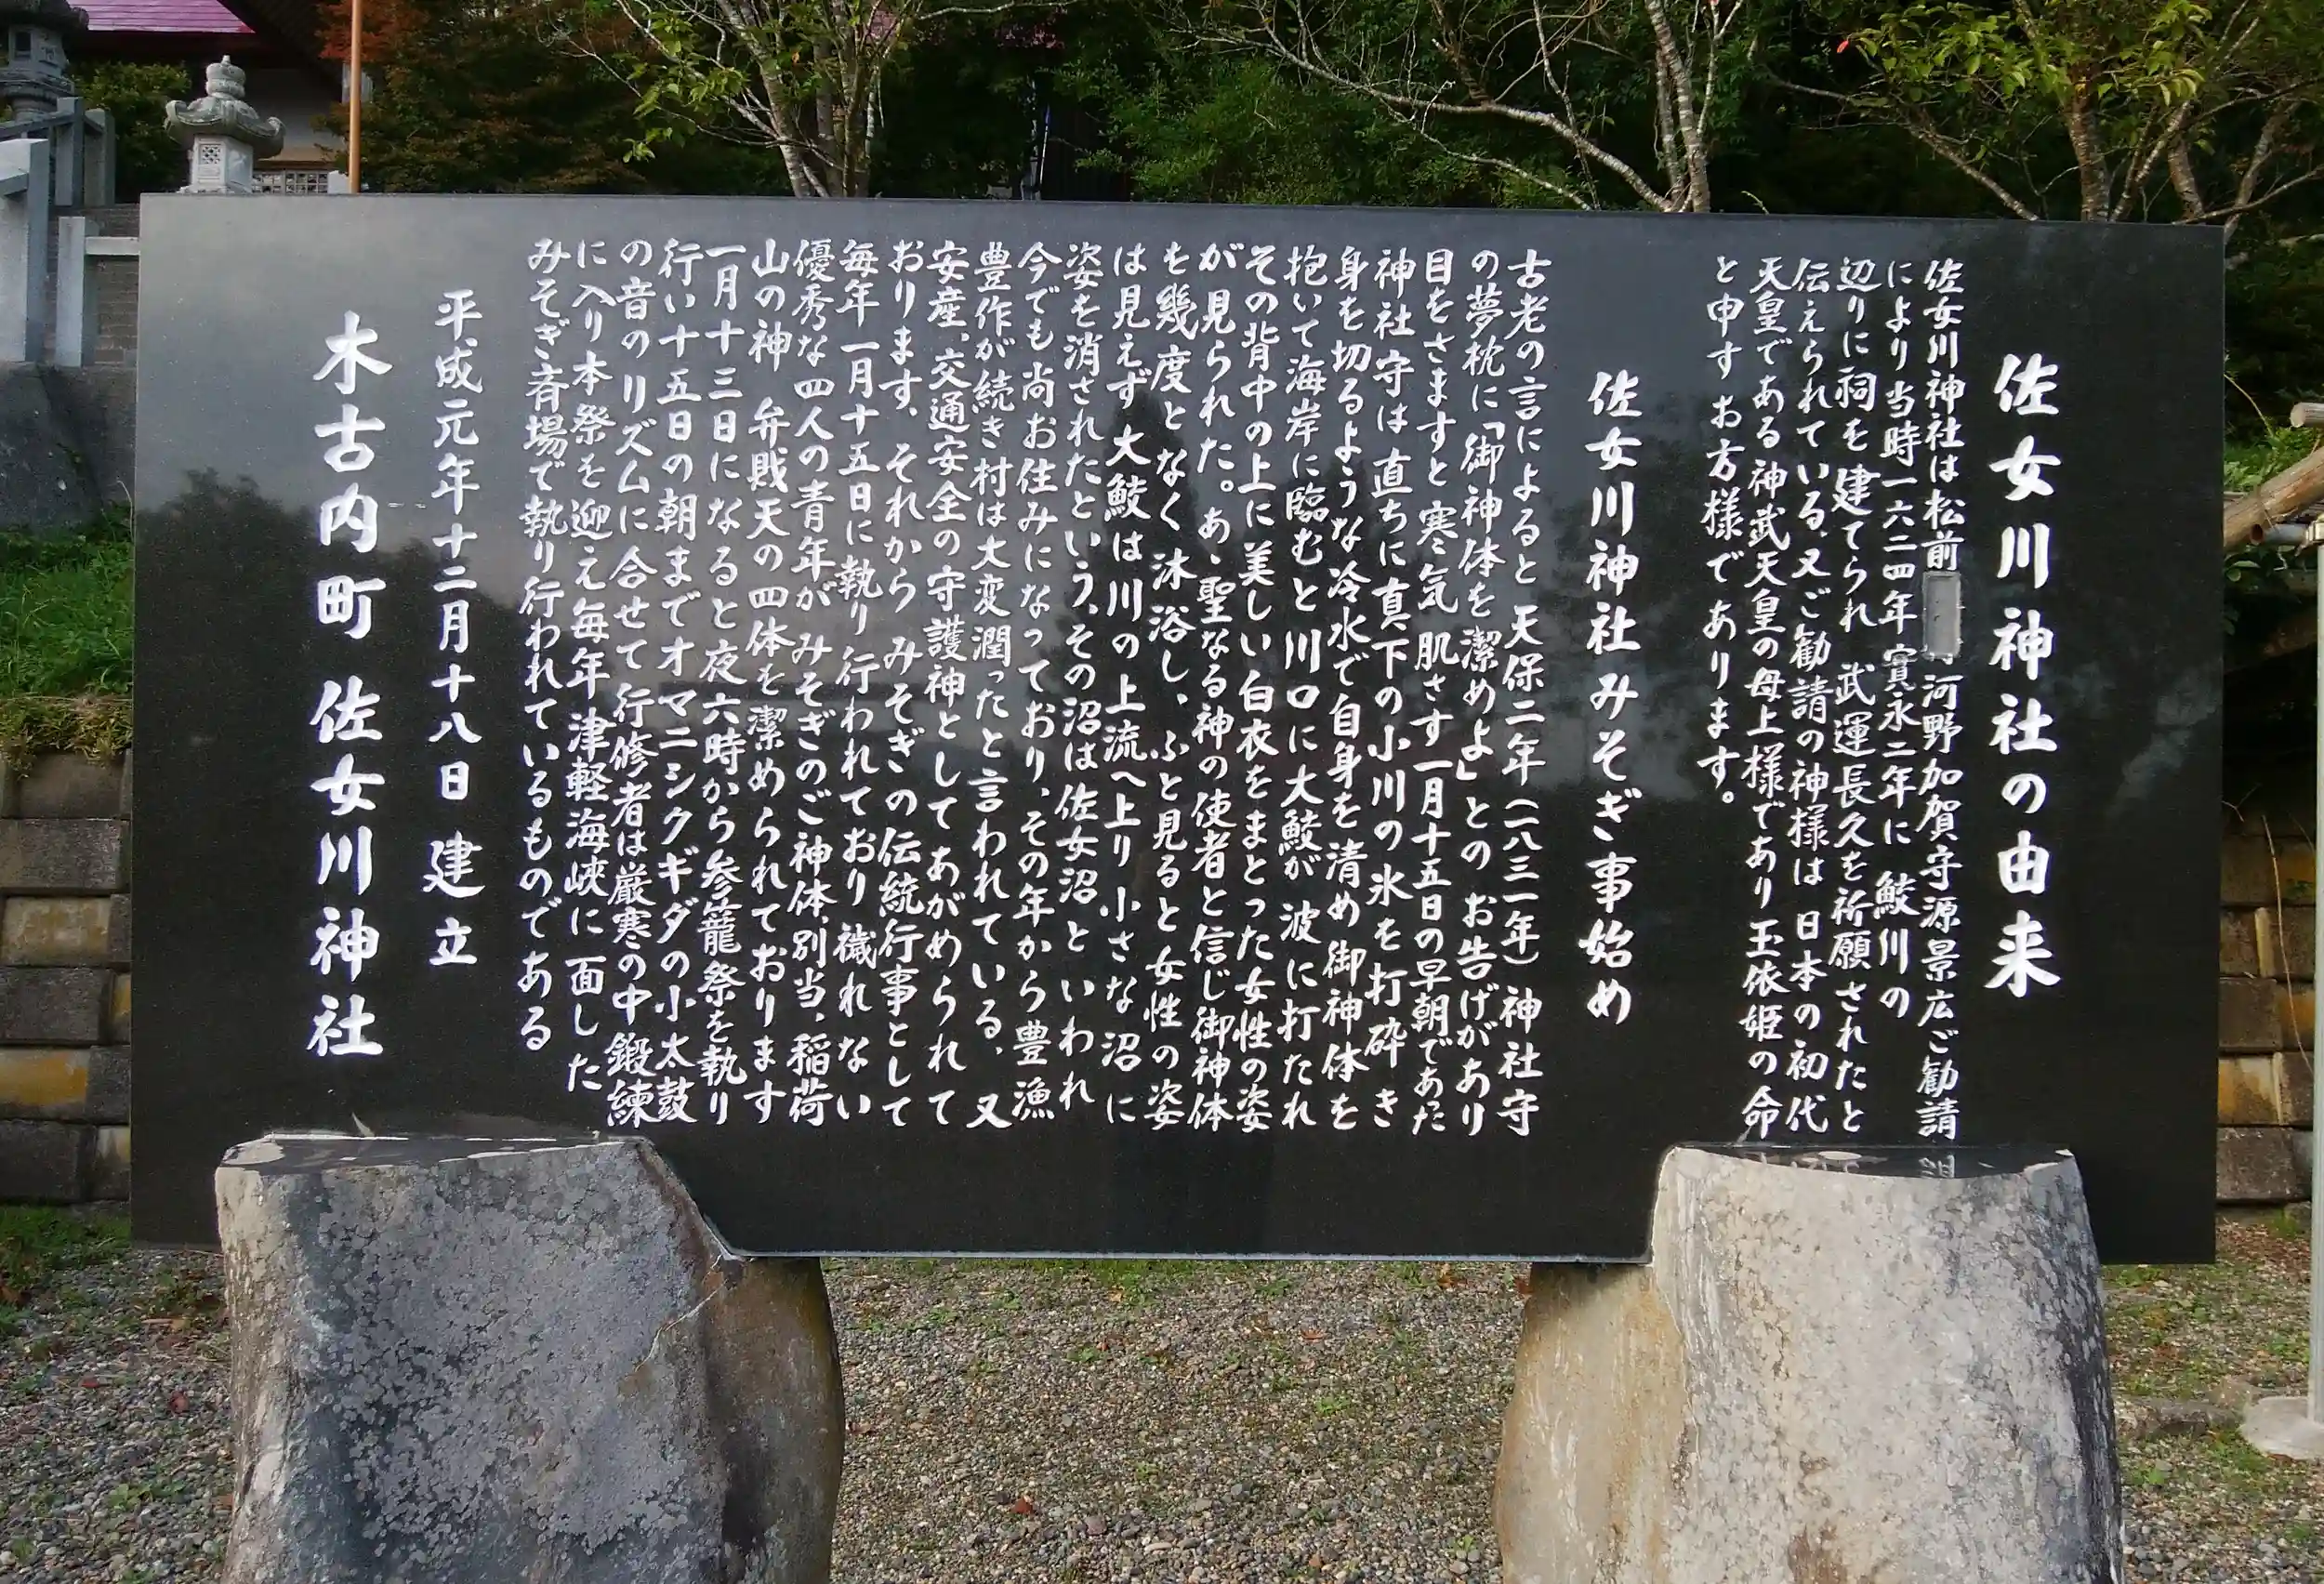 佐女川神社の由来
佐女川神社は松前河野加賀守源景広ご勧請
により当時一六二四年寛永二年に 鮫川の
辺りに祠を建てられ 武運長久を祈願されたと
伝えられている、又ご勧請の神様は 日本の初代
天皇である神武天皇の母上様であり玉依姫の命
と申すお方様であります。
佐女川神社みそぎ事始め
古老の言によると 天保二年(一八三一年)神社守
の夢枕に「御神体を潔めよ」との お告げがあり
目をさますと 寒気 肌さす一月十五日の早朝であった
神社守は直ちに真下の小川の氷を打砕き
身を切るような冷水で自身を清め御神体を
抱いて海岸に臨むと川口に大鮫が波に打たれ
その背中の上に美しい白衣をまとった女性の姿
が見られた。あゝ聖なる神の使者と信じ御神体
を幾度となく沐浴し、ふと見ると女性の姿
は見えず 大鮫は川の上流へ上り 小さな沼に
姿を消されたという、その沼は佐女沼といわれ
今でも尚お住みになっており、その年から豊漁
豊作が続き村は大変潤ったと言われている、又
安産、交通安全の守護神としてあがめられて
おります、それから みそぎの伝統行事として
毎年一月十五日に執り行われており 穢れない
優秀な四人の青年が みそぎのご神体、別当、稲荷
山の神 弁財天の四体を潔められております
一月十三日になると夜六時から参籠祭を執り
行い十五日の朝までオマニシクギダの小太鼓
の音のリズムに合せて行修者は厳寒の中 鍛練
に入り本祭を迎え毎年津軽海峡に面した
みそぎ斉場で執り行われているものである
平成元年十二月十八日 建立
木古内町 佐女川神社